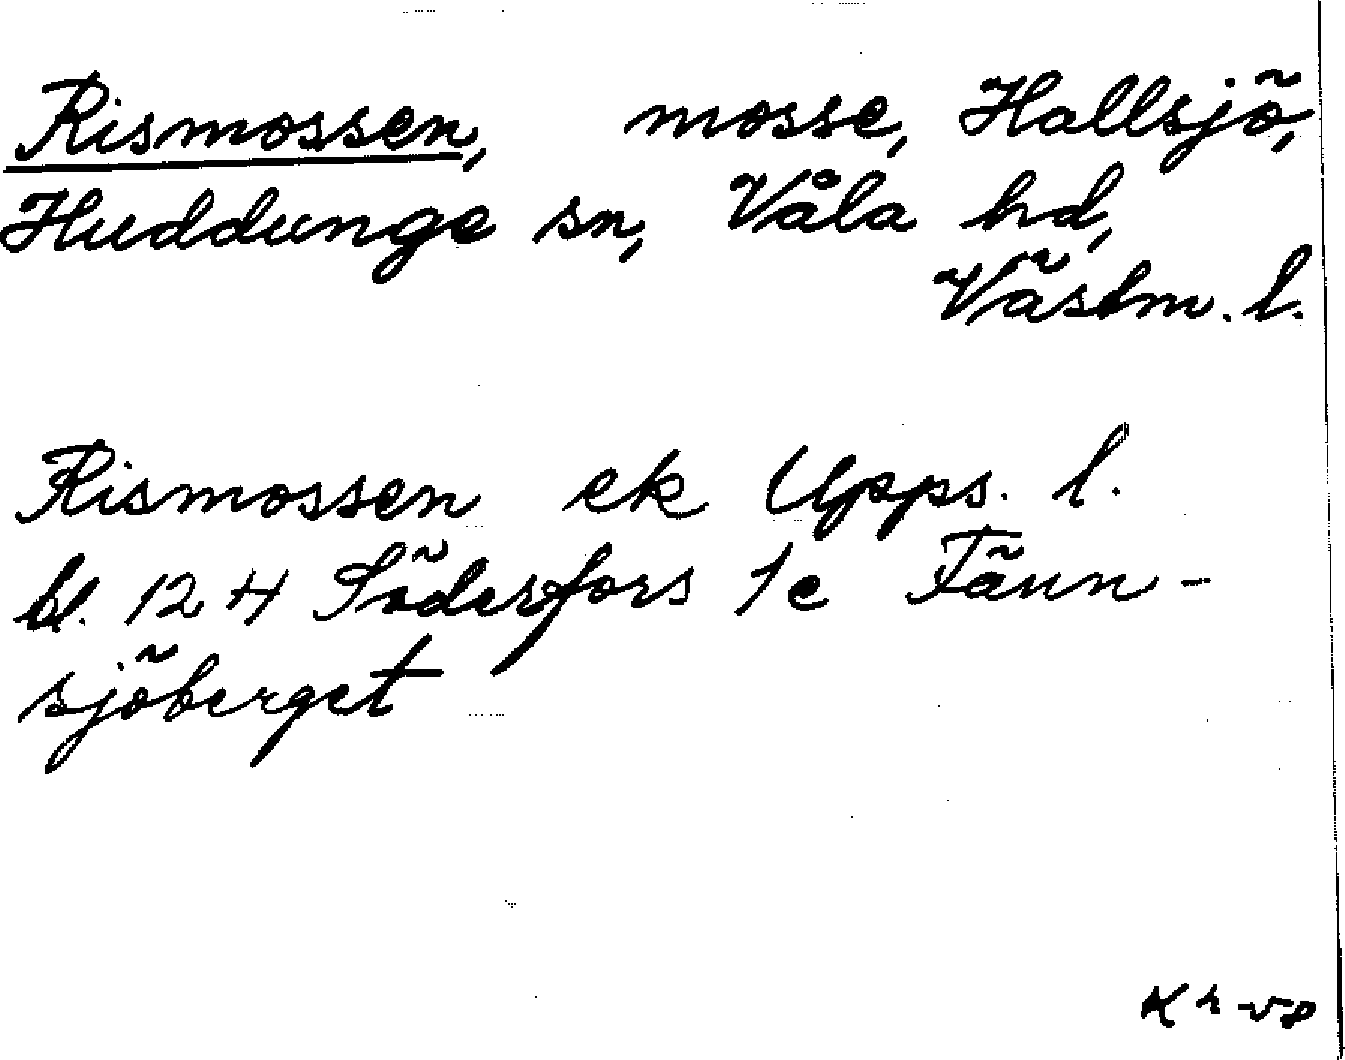 Rismossen, mosse, Hallsjö,
Huddunge sn, Våla hd,
Västm. l.
Rismossen ek Upps. l.
bl. 12 H Söderfors 1e Tärn-
sjöberget